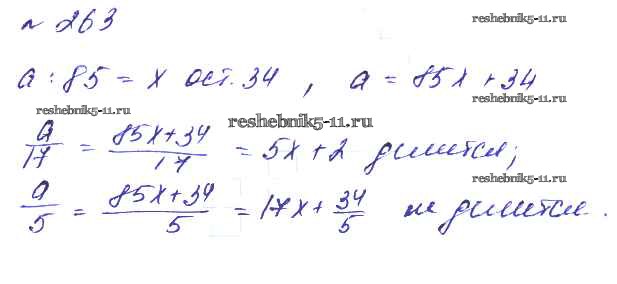 № 263
reshebnik5-11.ru
a : 85 = x ост. 34 , a = 85x + 34
reshebnik5-11.ru
reshebnik5-11.ru
reshebnik5-11.ru
a/17 = (85x+34)/17 = 5x + 2 делится;
reshebnik5-11.ru
a/5 = (85x+34)/5 = 17x + 34/5 не делится.